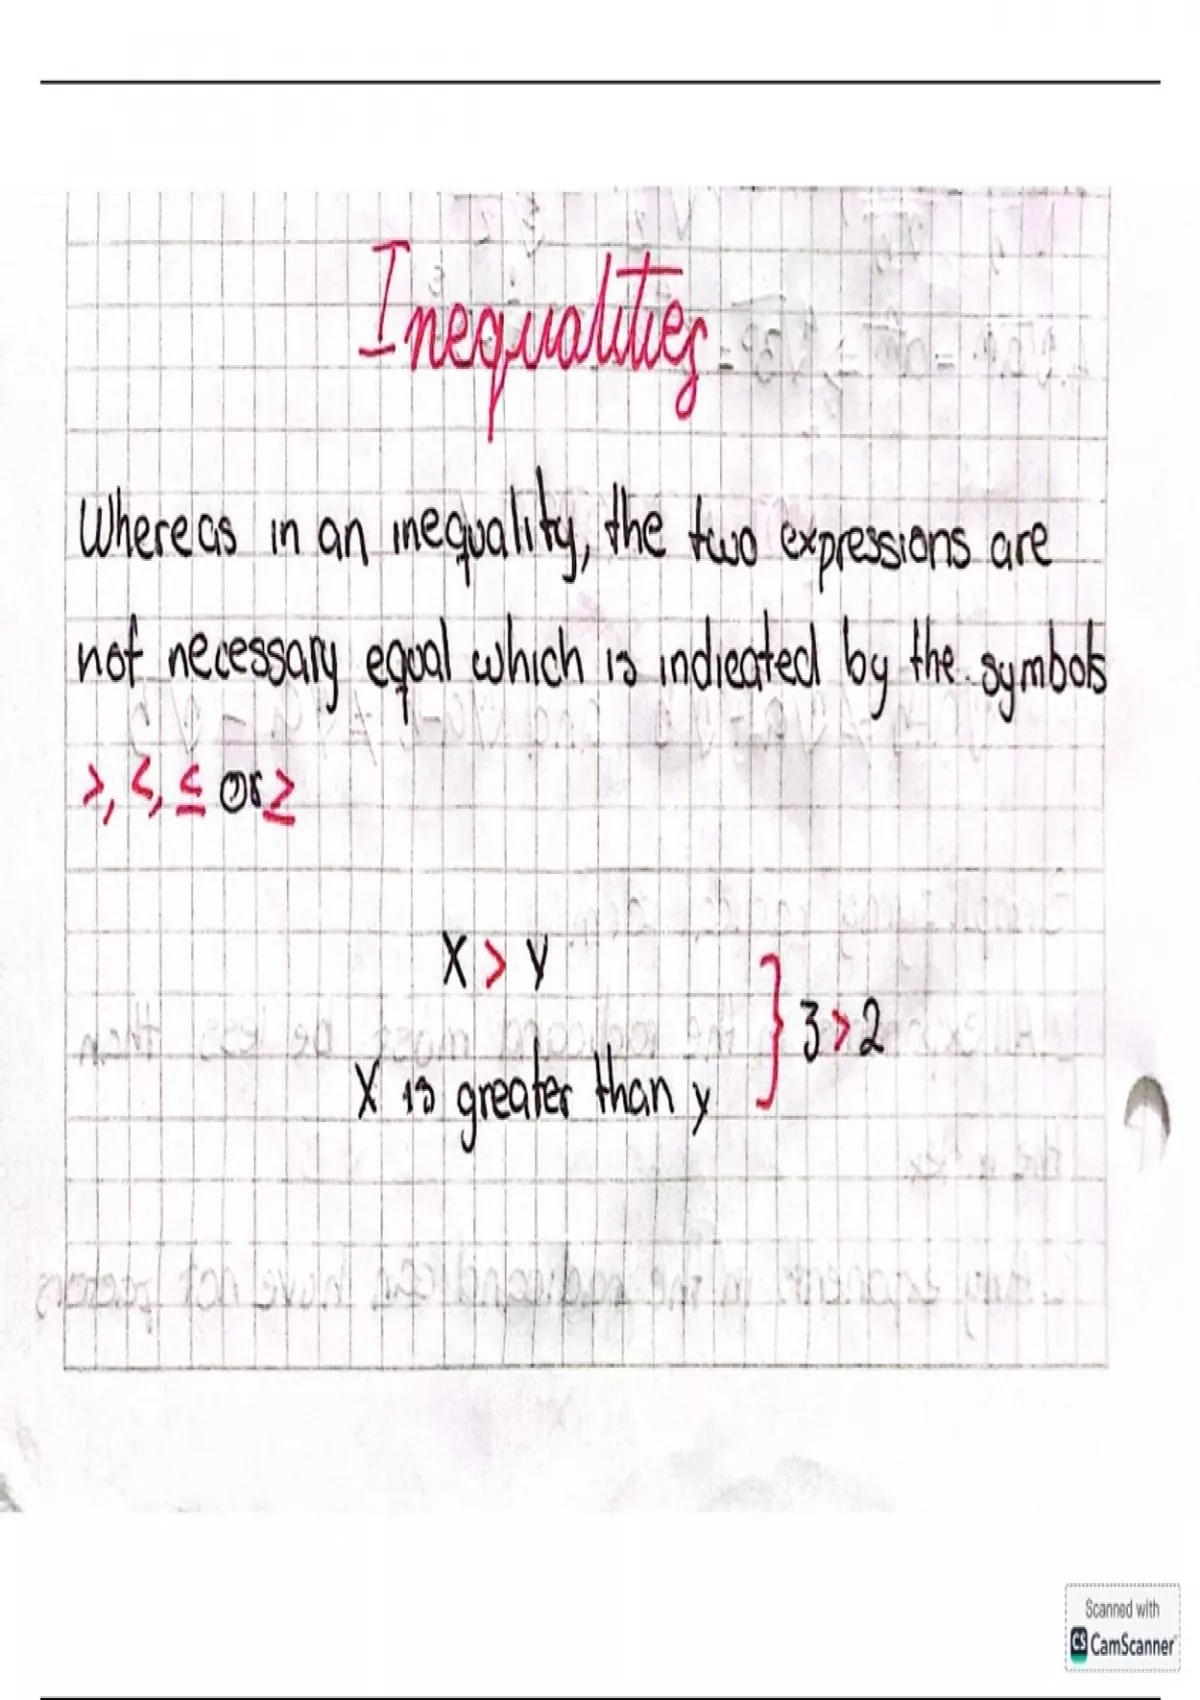 Inequalities
Whereas in an inequality, the two expressions are
not necessary equal which is indicated by the symbols
>, <, ≤ or ≥
X > y
} 3 > 2
X is greater than y
Scanned with
CS CamScanner